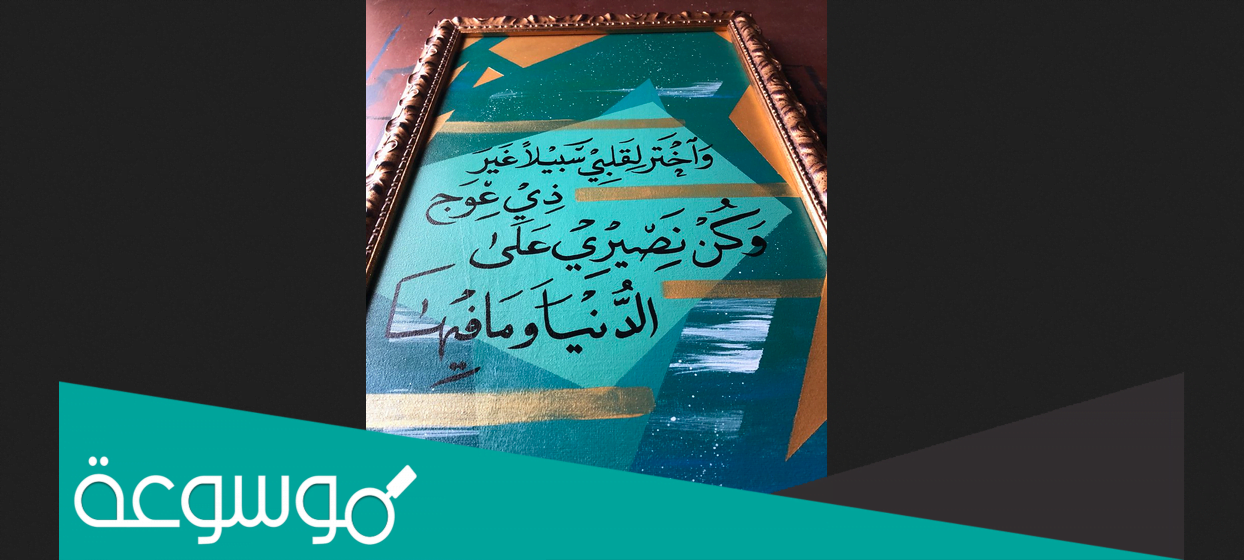 وَٱخْتَر لِقَلبِيْ سَّبيْلاً غَيرَ
ذِيْ عِّوَج
وَكُنْ نَصِّيْرِيْ عَلَىٰ
الدُّنيْاَ وَمَا فيْهَا
موسوعة